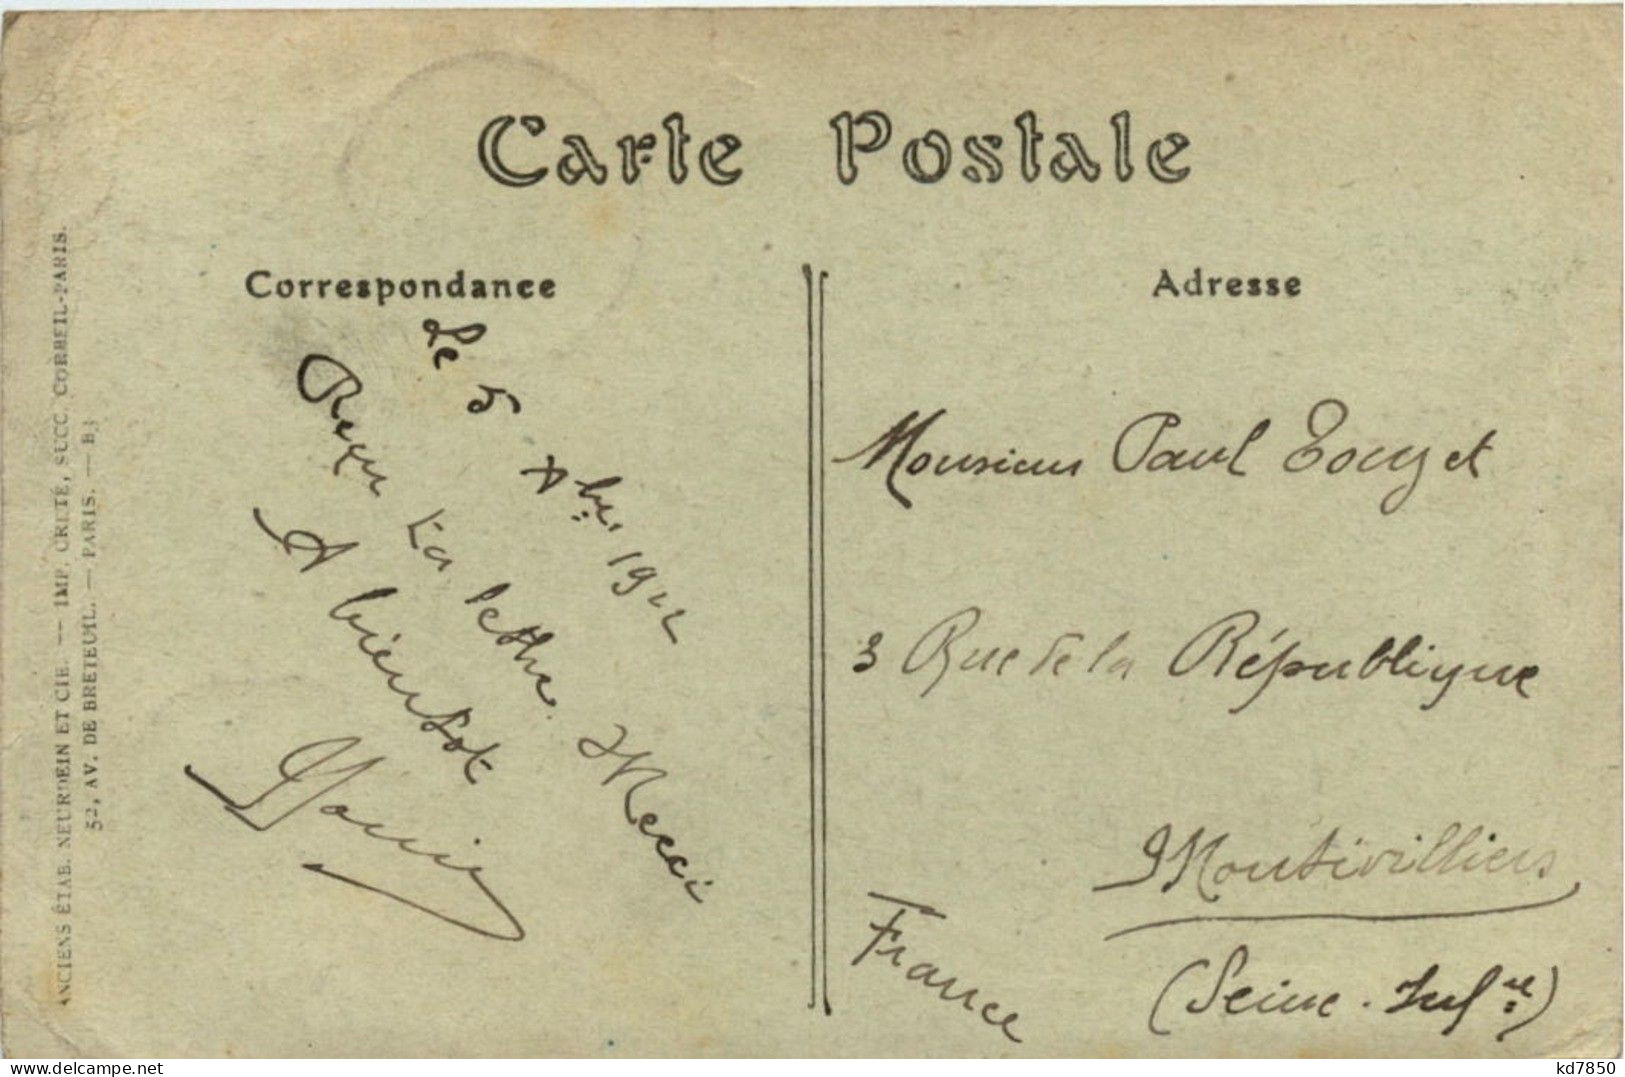 Carte Postale
Correspondance
Adresse
Le 5 Xbre 1922
Reçu ta lettre. Merci
A bientôt
Monsieur Paul Touzet
3 Rue de la République
Montivilliers
(Seine-Infre)
France
ANCIENS ÉTAB. NEURDEIN ET CIE. — IMP. CRÉTÉ, SUCC. CORBEIL-PARIS.
52, AV. DE BRETEUIL. — PARIS. — B3
www.delcampe.net
kd7850